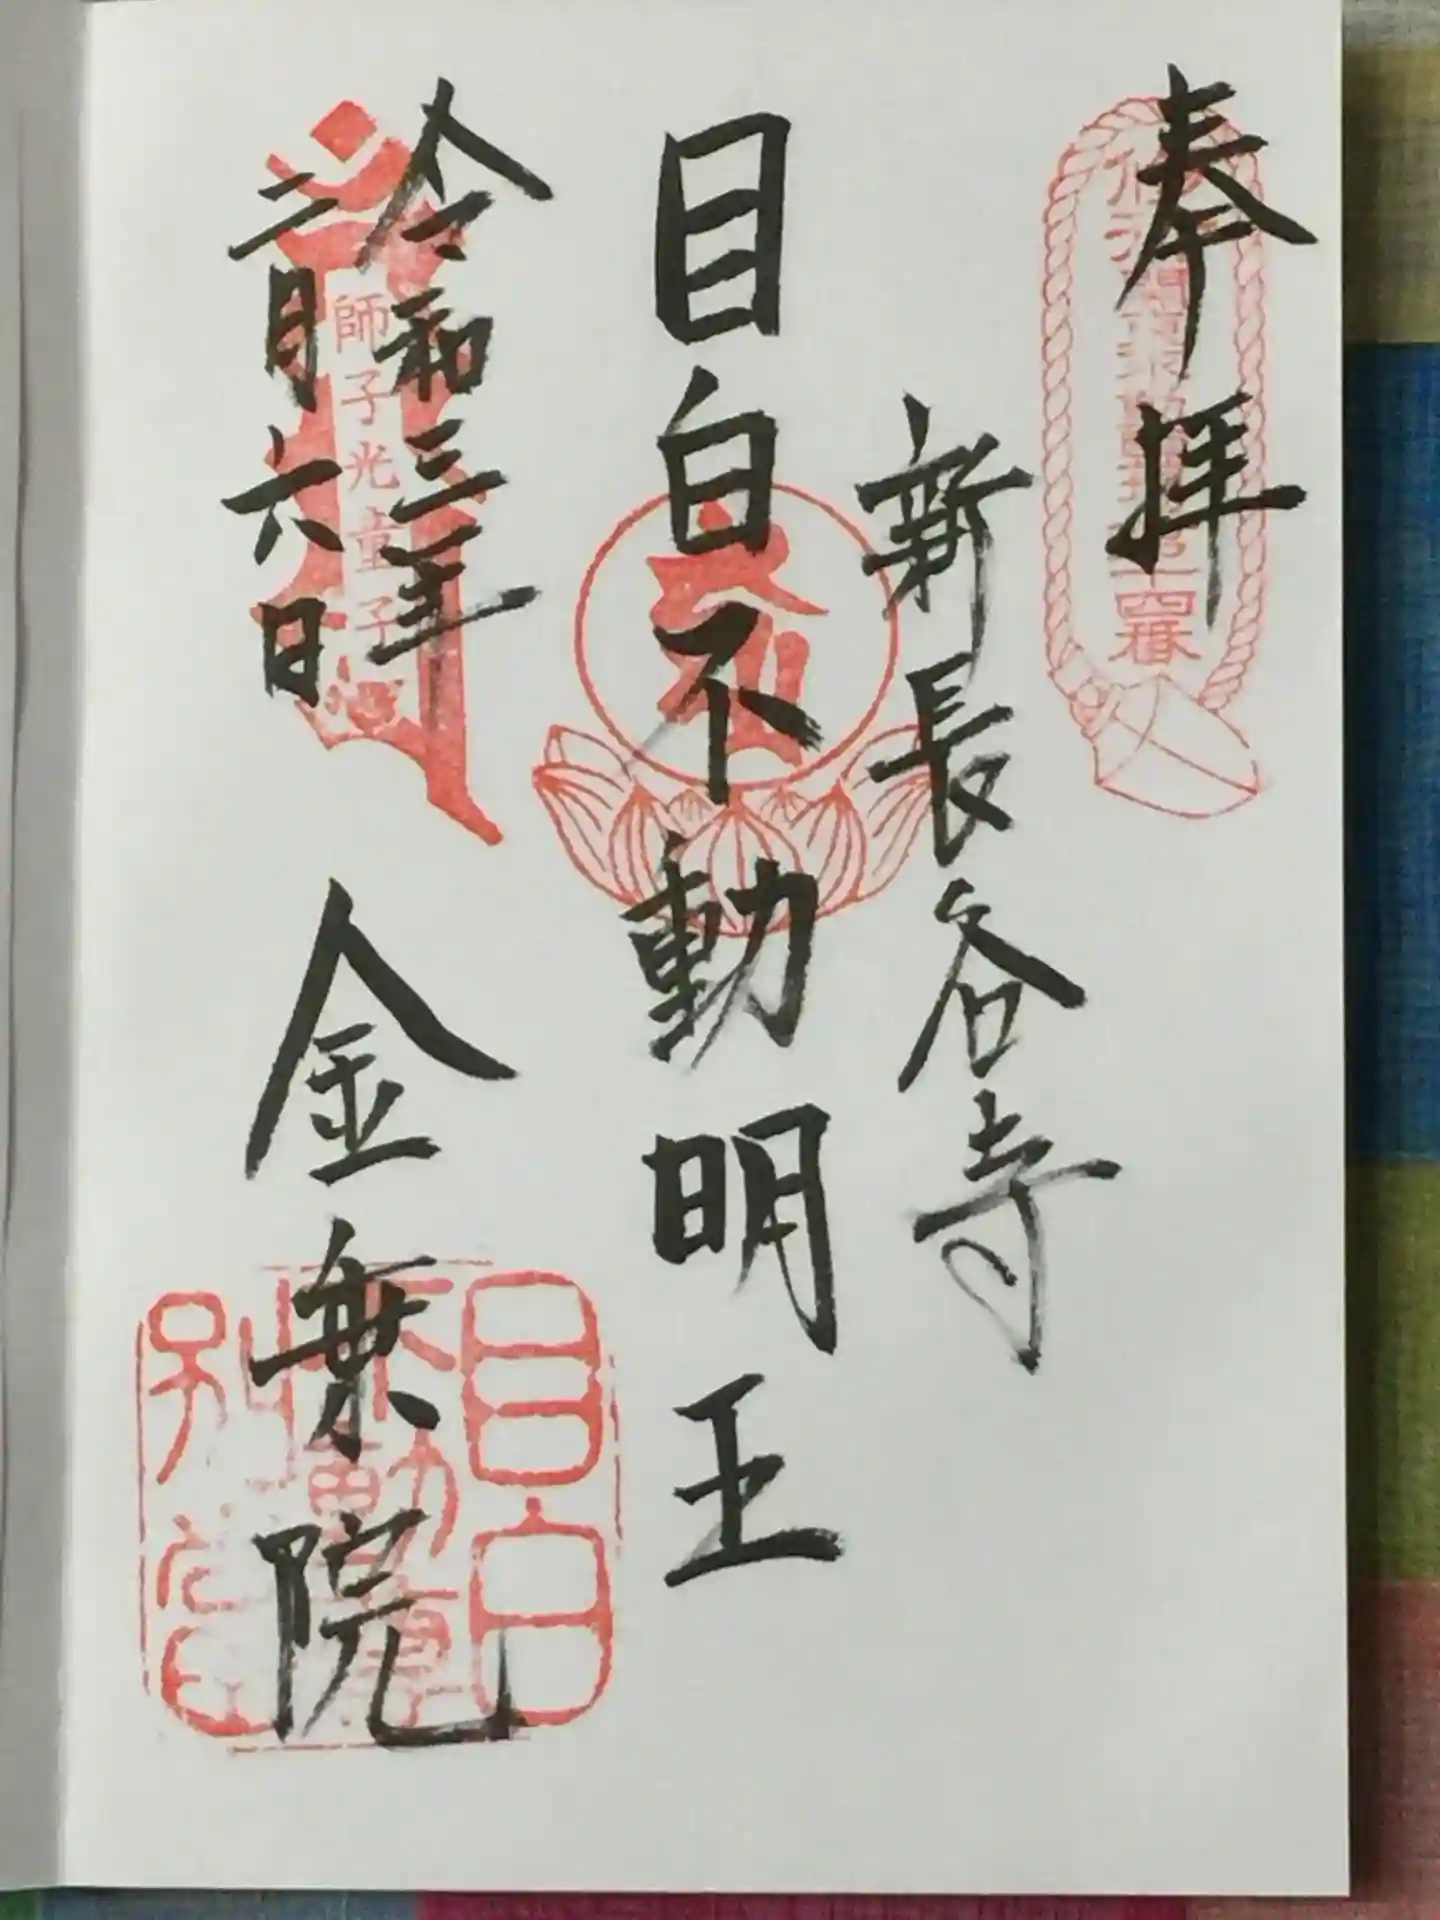 奉拝
新長谷寺
目白不動明王
令和三年
二月六日
師子光童子
金乗院
目白
不動
別當